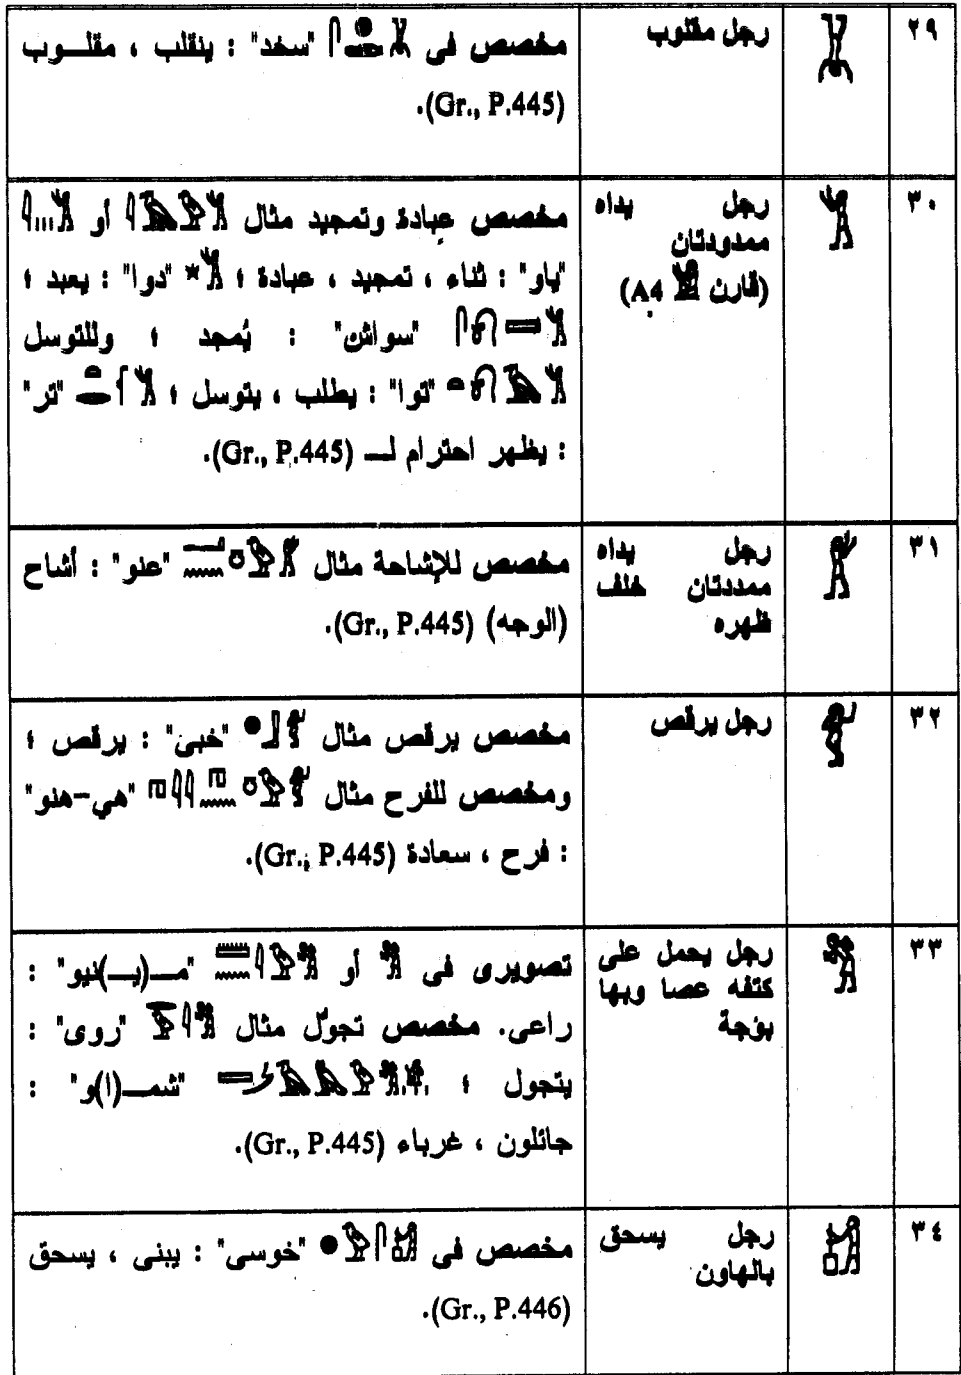 ٢٩
رجل مقلوب
مخصص فى 𓀡𓐍𓂧𓋴 "سخد" : ينقلب ، مقلـوب
(Gr., P.445).
٣٠
رجل يداه
ممدودتان
(قارن 𓀃 A4)
مخصص عبادة وتمجيد مثال أو
"ياو" : ثناء ، تمجيد ، عبادة ؛ "دوا" : يعبد ؛
"سواش" : يُمجد ؛ وللتوسل
"توا" : يطلب ، يتوسل ؛ "تر"
: يظهر احترام لـ (Gr., P.445).
٣١
رجل يداه
ممددتان خلف
ظهره
مخصص للإشاحة مثال "عنو" : أشاح
(الوجه) (Gr., P.445).
٣٢
رجل يرقص
مخصص يرقص مثال "خبى" : يرقص ؛
ومخصص للفرح مثال "هي-هنو"
: فرح ، سعادة (Gr., P.445).
٣٣
رجل يحمل على
كتفه عصا وبها
بؤجة
تصويرى فى أو "مـ(يـ)نيو" :
راعى. مخصص تجوّل مثال "روى" :
يتجول ؛ "شمـ(ا)و" :
جائلون ، غرباء (Gr., P.445).
٣٤
رجل يسحق
بالهاون
مخصص فى "خوسى" : يبنى ، يسحق
(Gr., P.446).